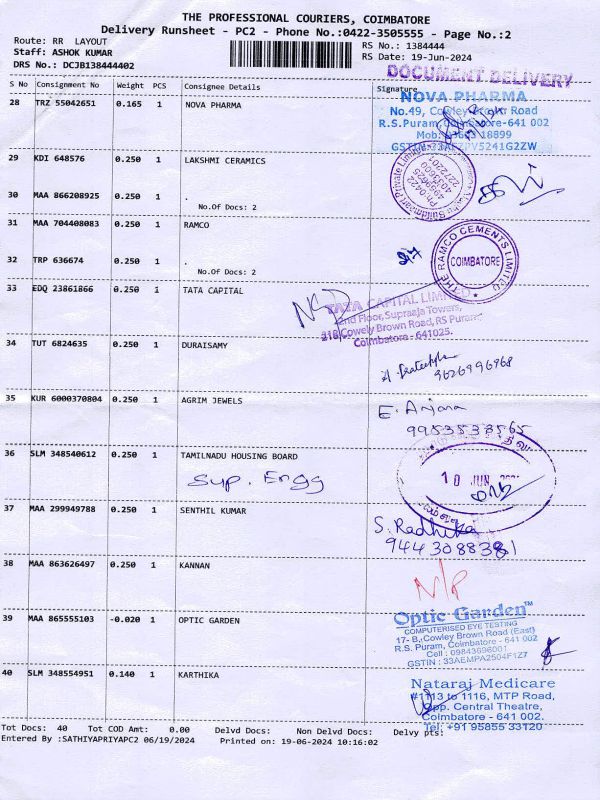 THE PROFESSIONAL COURIERS, COIMBATORE
Delivery Runsheet - PC2 - Phone No.:0422-3505555 - Page No.:2
Route: RR LAYOUT
RS No.: 1384444
Staff: ASHOK KUMAR
RS Date: 19-Jun-2024
DRS No.: DCJB138444402
DOCUMENT DELIVERY
S No Consignment No Weight PCS Consignee Details Signature
28 TRZ 55042651 0.165 1 NOVA PHARMA
NOVA PHARMA
No.49, Cowley Brown Road
R.S.Puram, Coimbatore-641 002
29 KDI 648576 0.250 1 LAKSHMI CERAMICS
30 MAA 866208925 0.250 1 .
No.Of Docs: 2
31 MAA 704408083 0.250 1 RAMCO
THE RAMCO CEMENTS LIMITED
COIMBATORE
32 TRP 636674 0.250 1 .
No.Of Docs: 2
33 EDQ 23861866 0.250 1 TATA CAPITAL
TATA CAPITAL LIMITED
2nd Floor, Supraaja Towers,
218 Cowely Brown Road, RS Puram,
Coimbatore - 641025.
34 TUT 6824635 0.250 1 DURAISAMY
9626996968
35 KUR 6000370804 0.250 1 AGRIM JEWELS
E. Anjana
9953533565
36 SLM 348540612 0.250 1 TAMILNADU HOUSING BOARD
Sup. Engg
10 JUN
37 MAA 299949788 0.250 1 SENTHIL KUMAR
S. Radhika
9443088381
38 MAA 863626497 0.250 1 KANNAN
N/P
39 MAA 865555103 -0.020 1 OPTIC GARDEN
Optic Garden™
COMPUTERISED EYE TESTING
17- B, Cowley Brown Road (East)
R.S. Puram, Coimbatore - 641 002
Cell : 09843696001
GSTIN : 33AEMPA2504F1Z7
40 SLM 348554951 0.140 1 KARTHIKA
Nataraj Medicare
#1113 to 1116, MTP Road,
Opp. Central Theatre,
Coimbatore - 641 002.
Tel: +91 95855 33120
Tot Docs: 40 Tot COD Amt: 0.00 Delvd Docs: Non Delvd Docs: Delvy pts:
Entered By :SATHIYAPRIYAPC2 06/19/2024 Printed on: 19-06-2024 10:16:02